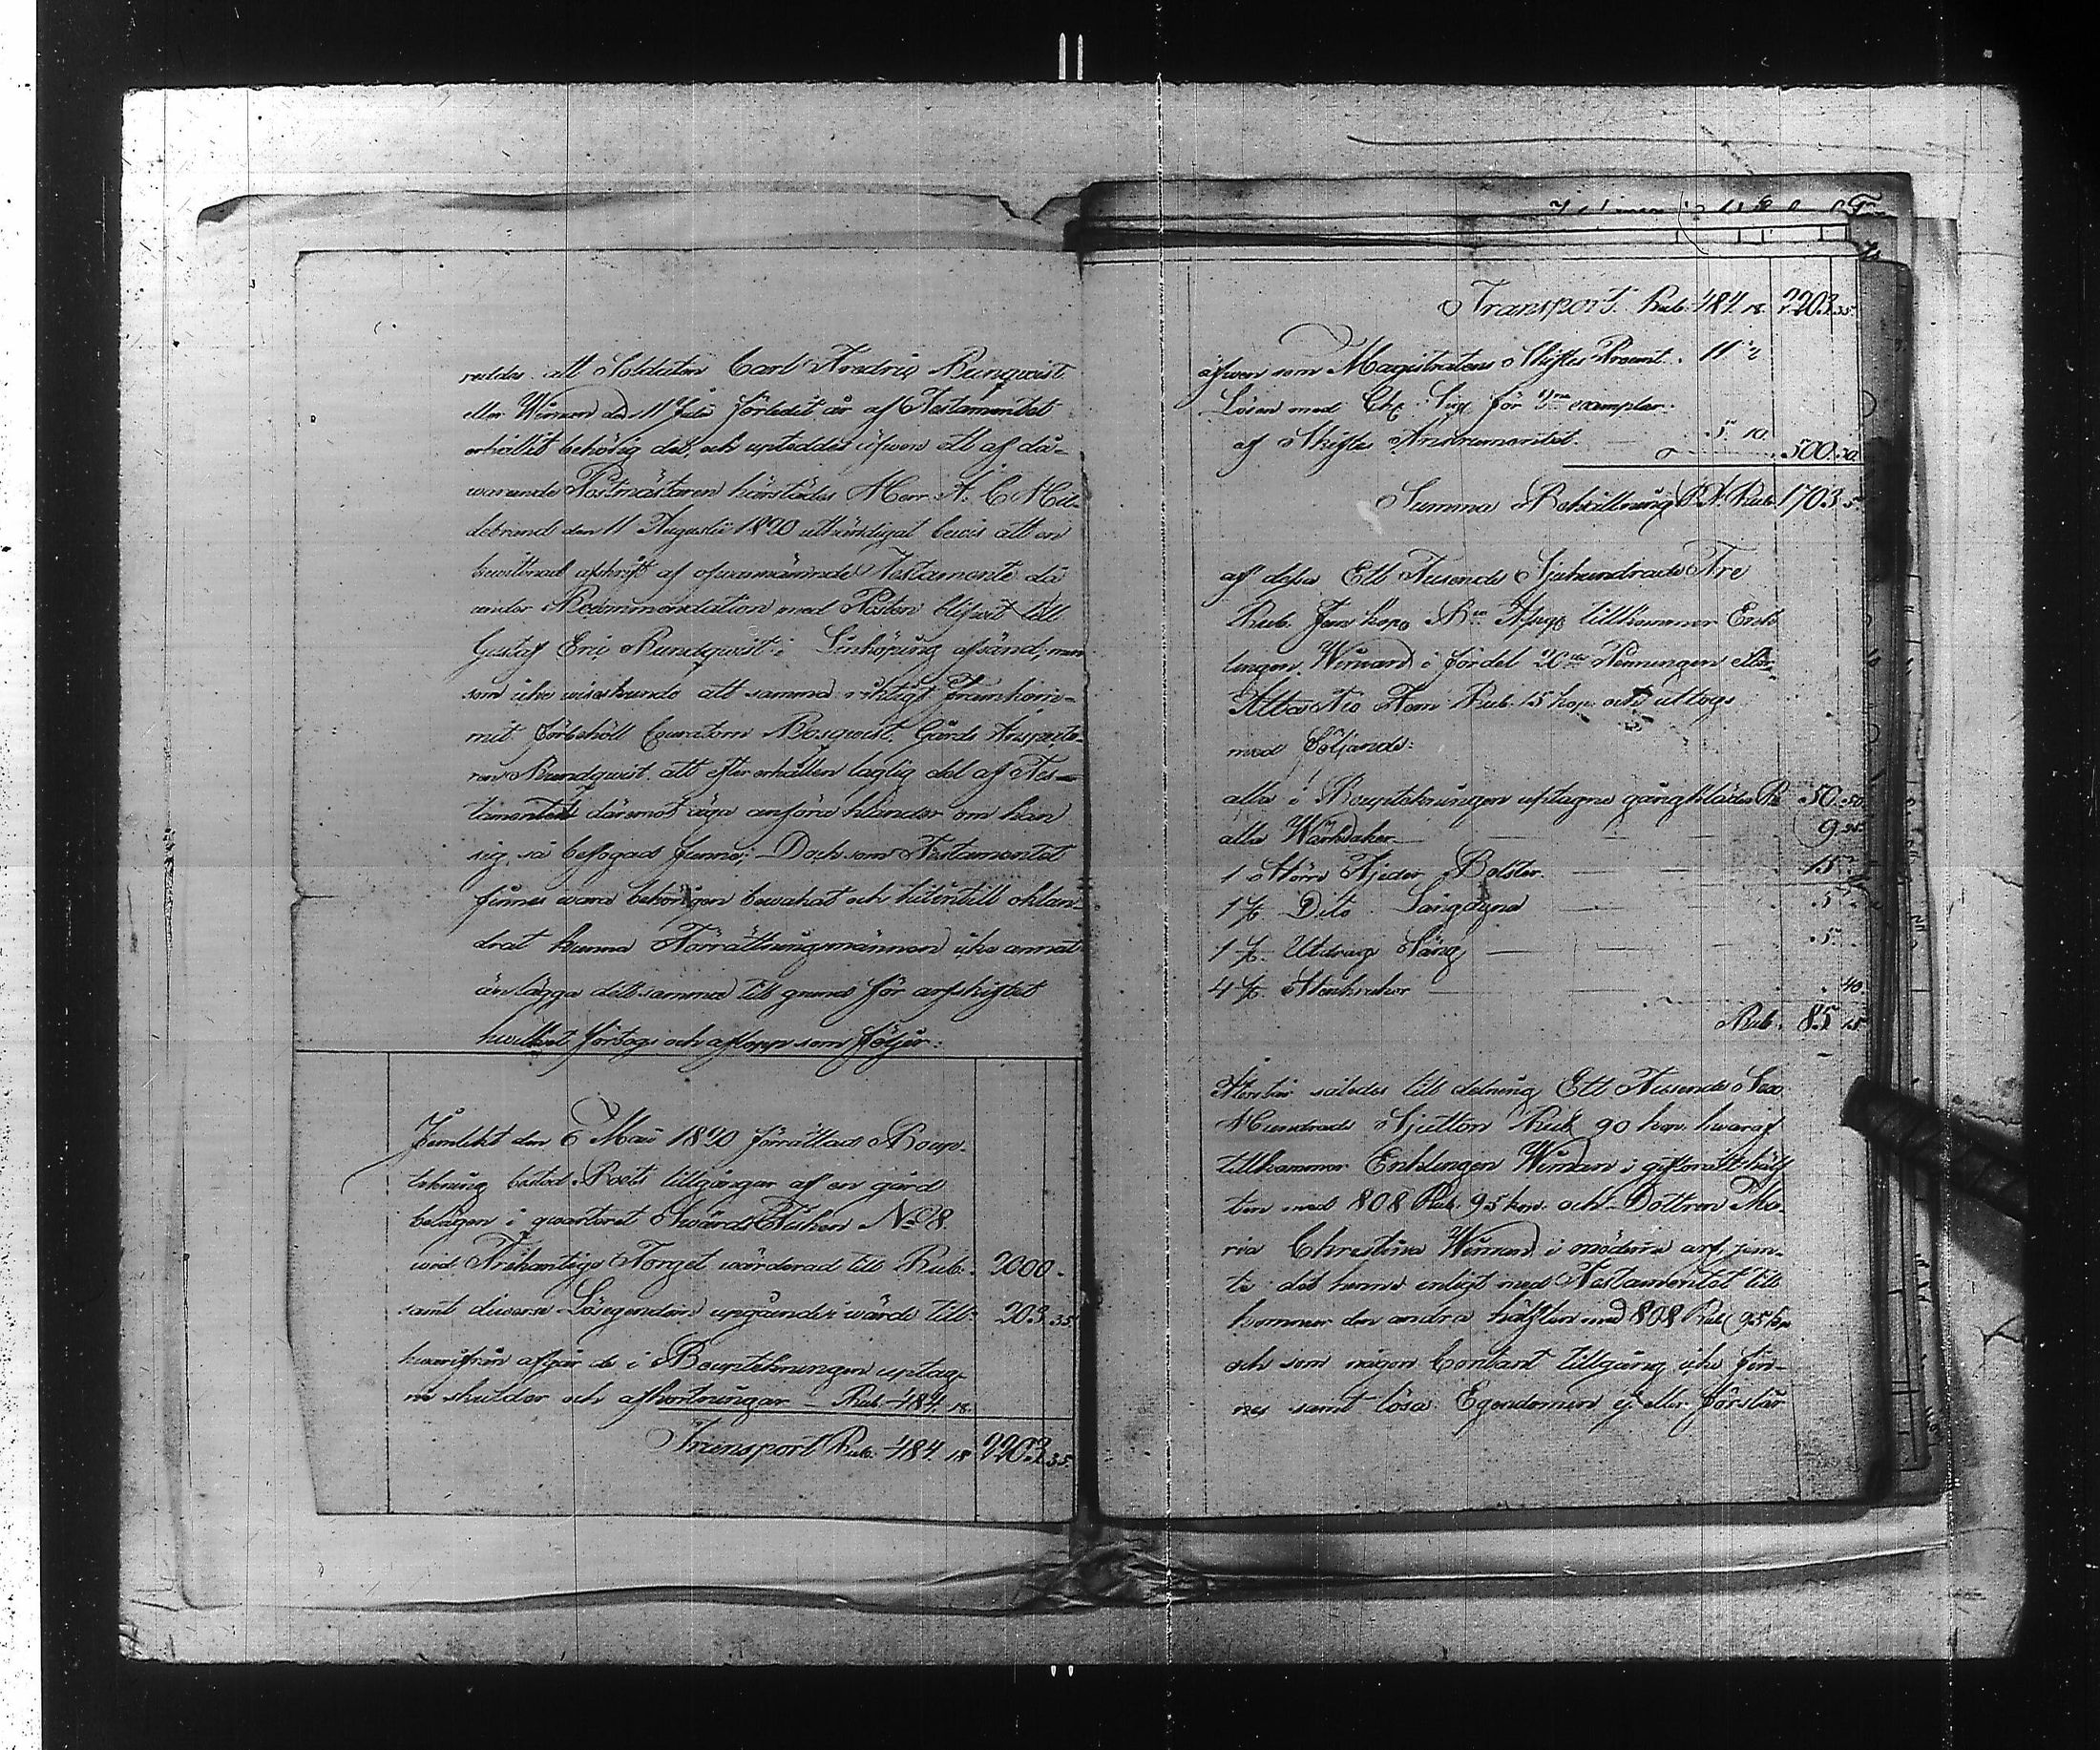 reddes att Soldaten Carl Fredric Runqvist
eller Wiman den 11 Julii förledit år af Testamentet
erhållit behörig del, och upteddes äfwen ett af då-
warande Postmästaren härstädes Herr A. C. Hil-
debrand den 11 Augustii 1820 utfärdigat bewis att en
bewittnad afskrift af ofwannämnde Testamente då
under Recommendation med Posten blifwit till
Gustaf Eric Rundqwist i Linköping afsänd; men
som icke wisste att samma riktigt framkom-
mit förbehöll Curatorn Gårds Inspecto-
ren Rundqwist att efter erhållen laglig del af Tes-
tamentet däremot äga anföra klander om han
sig så befogad finner; Dock som Testamentet
finnes wara behörigen bewakat och hitintill oklan-
drat kunna Förrättningsmännen icke annat
än lägga detsamma till grund för arfskiftet
hwilket förtogs och aflopp som följer:
Jemlikt den 6 Maii 1820 förrättad Boup-
tekning bestod Boets tillgångar af en gård
belägen i qwarteret Swärd Fisken No 8.
wid Trekantiga Torget wärderad till Rub. 2000 -
samt diverse Lösegendom upgående i wärde till 203.35
hwarifrån afgår de i Bouptekningen uptag-
ne skulder och afkortningar - Rub. 484. 18.
Transport Rub. 484. 18 2203.35.
Transport. Rub. 484. 18. 2203.35.
äfwen som Magistratens Skiftes Procent. 11 2
Lösen med Ch. Sig. för 3ne exemplar
af Skiftes Instrumentet 5. 10 500.30
Summa Behållning B.A. Rub. 1703.5
af dessa Ett Tusende Sjuhundrade Tre
Rub. Fem kop. Bco Assign. tillkommer Enk-
lingen Wiman i fördel 20de Penningen eller
Åttatio Fem Rub. 15 kop. och uttogs
med följande:
alla i Bouptekningen uptagne gångkläder R. 50.50
alla Wärktsaker 9.25
1 Större Fjeder Bolster 15.
1 st. Dito Sängdyna 5.
1 st. Utdrag Säng 5.
4 st. Stenkrukor 40
Rub. 85 15
Återstår således till delning Ett Tusende Sex
Hundrade Sjutton Rub. 90 kop. hwaraf
tillkommer Enklingen Wiman i giftorätt hälf-
ten med 808 Rub. 95 kop. och Dottren Ma-
ria Christina Wiman i möderne arf, jem-
te det henne enligt med Testamentet till
kommer den andra hälften med 808 Rub. 95 kp.
och som någon Contant tillgång icke fin-
nes samt lösa Egendomen ej eller förslår